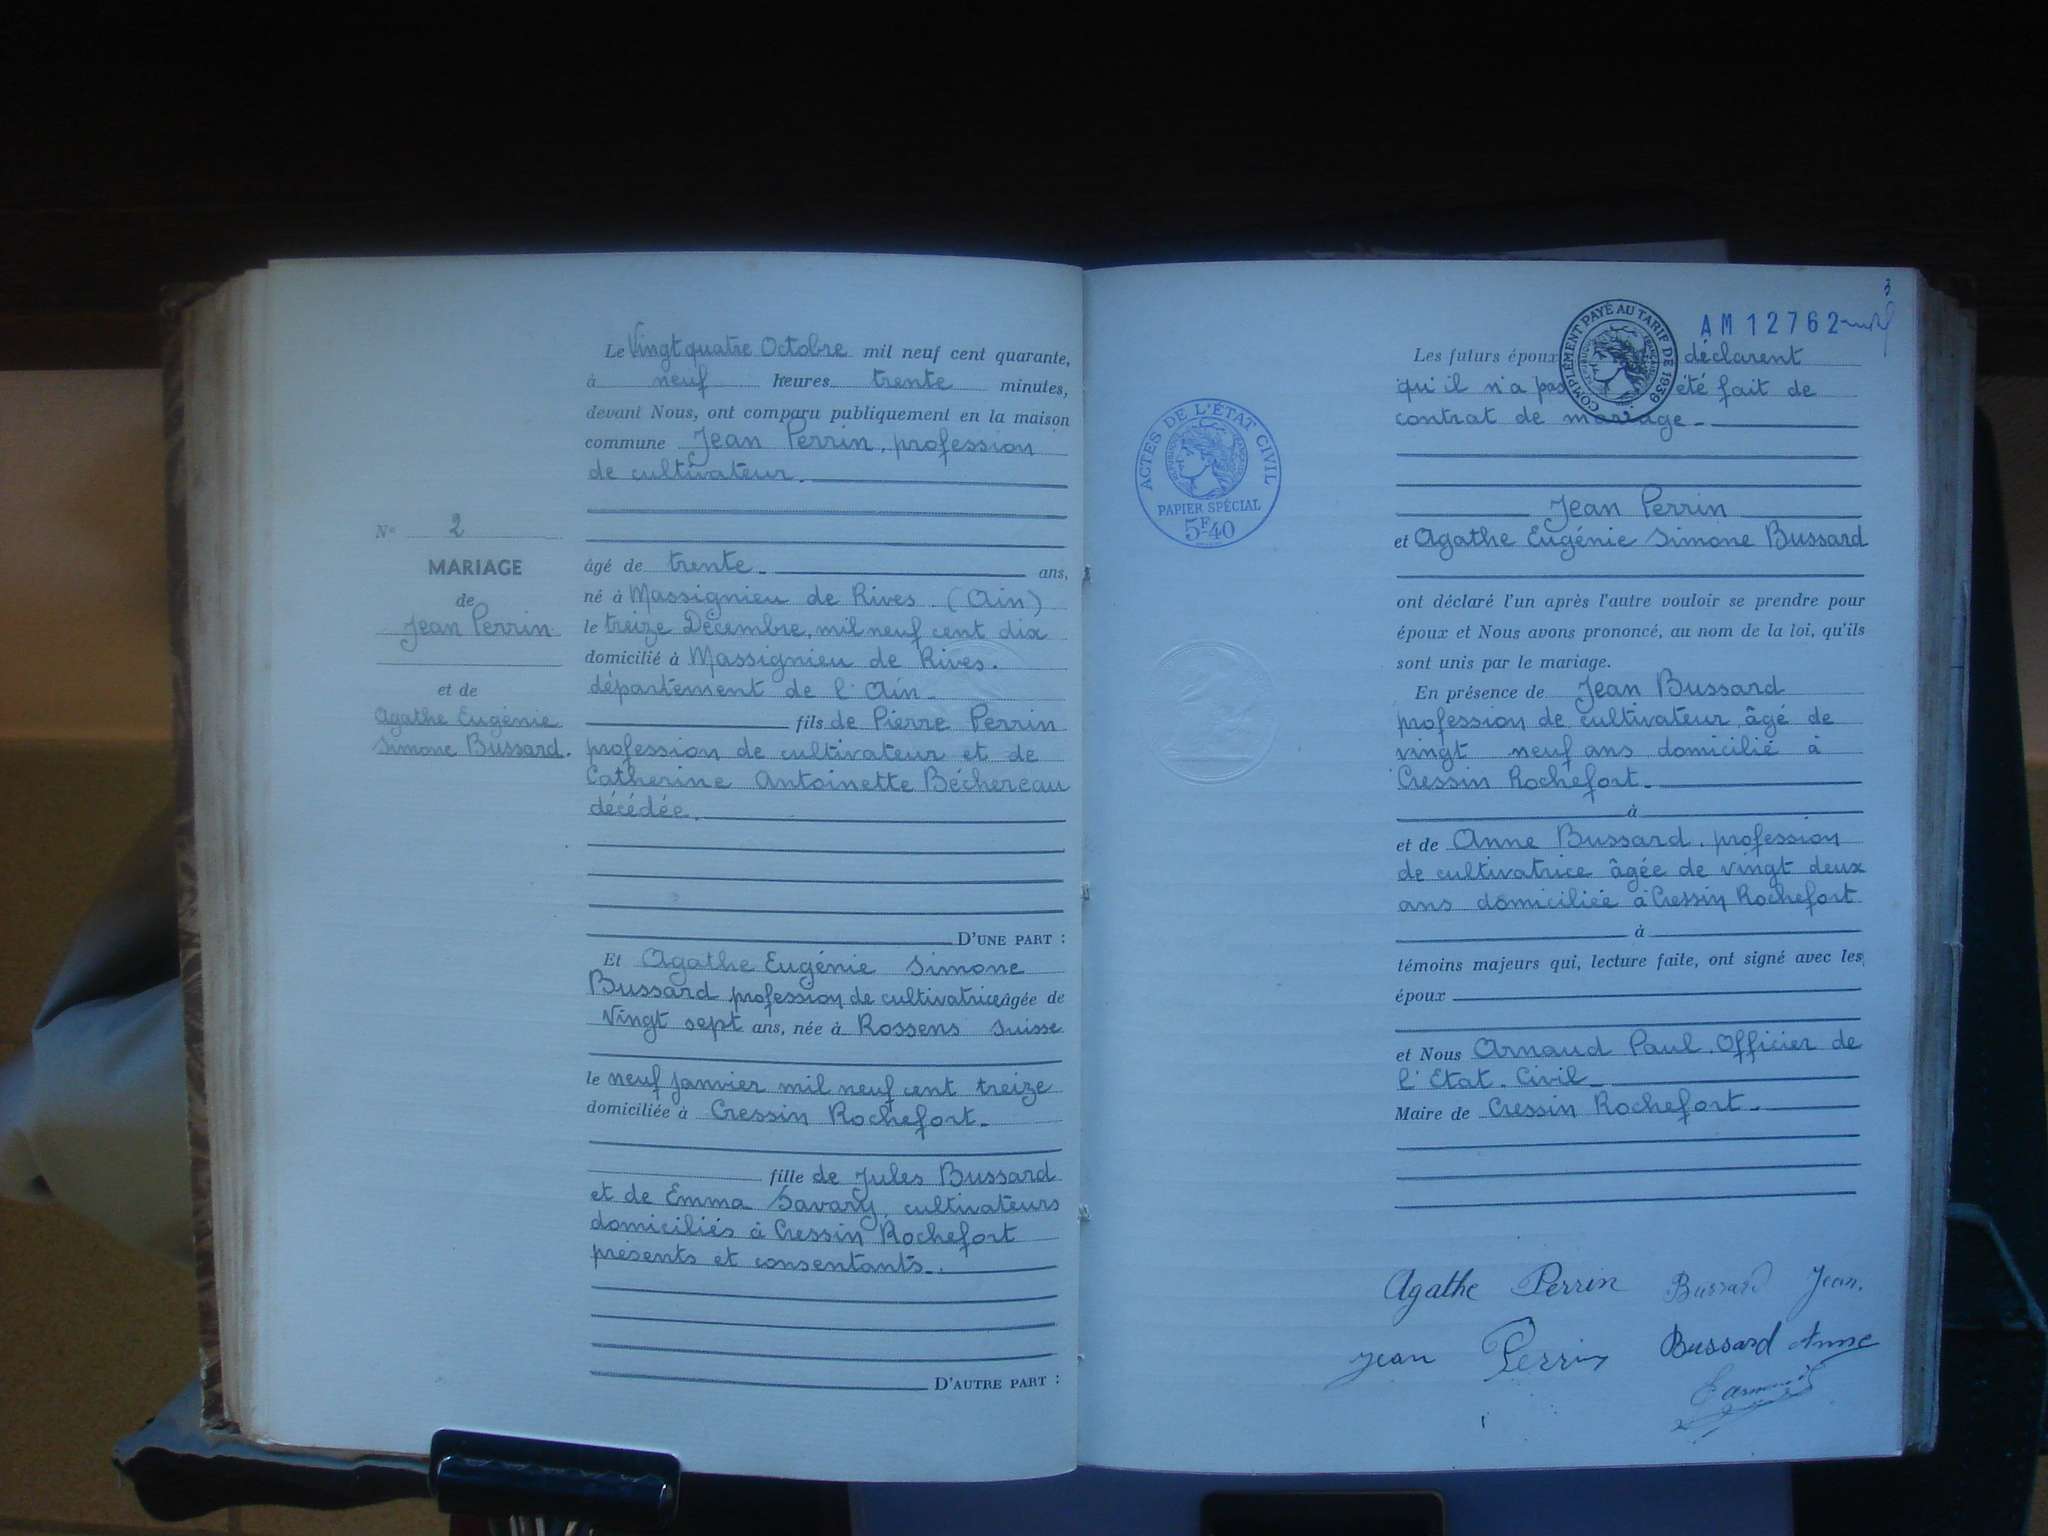 Le Vingt quatre Octobre mil neuf cent quarante,
à neuf heures trente minutes,
devant Nous, ont comparu publiquement en la maison
commune Jean Perrin, profession
de cultivateur.
N° 2
MARIAGE
de
Jean Perrin
et de
Agathe Eugénie
Simone Bussard.
âgé de trente ans,
né à Massignieu de Rives (Ain)
le treize Décembre, mil neuf cent dix
domicilié à Massignieu de Rives.
département de l'Ain
fils de Pierre Perrin
profession de cultivateur et de
Catherine Antoinette Béchereau
décédée.
D'UNE PART :
Et Agathe Eugénie Simone
Bussard profession de cultivatrice âgée de
Vingt sept ans, née à Rossens Suisse
le neuf janvier mil neuf cent treize
domiciliée à Cressin Rochefort
fille de Jules Bussard
et de Emma Savary, cultivateurs
domiciliés à Cressin Rochefort
présents et consentants.
D'AUTRE PART :
3
AM 12762
COMPLÉMENT PAYÉ AU TARIF DE 1939
ACTES DE L'ÉTAT CIVIL
PAPIER SPÉCIAL
5F40
Les futurs époux déclarent
qu'il n'a pas été fait de
contrat de mariage
Jean Perrin
et Agathe Eugénie Simone Bussard
ont déclaré l'un après l'autre vouloir se prendre pour
époux et Nous avons prononcé, au nom de la loi, qu'ils
sont unis par le mariage.
En présence de Jean Bussard
profession de cultivateur, âgé de
vingt neuf ans domicilié à
Cressin Rochefort
à
et de Anne Bussard, profession
de cultivatrice âgée de vingt deux
ans domiciliée à Cressin Rochefort
à
témoins majeurs qui, lecture faite, ont signé avec les
époux
et Nous Arnaud Paul, Officier de
l'Etat-Civil
Maire de Cressin Rochefort
Agathe Perrin Bussard Jean.
Jean Perrin Bussard Anne